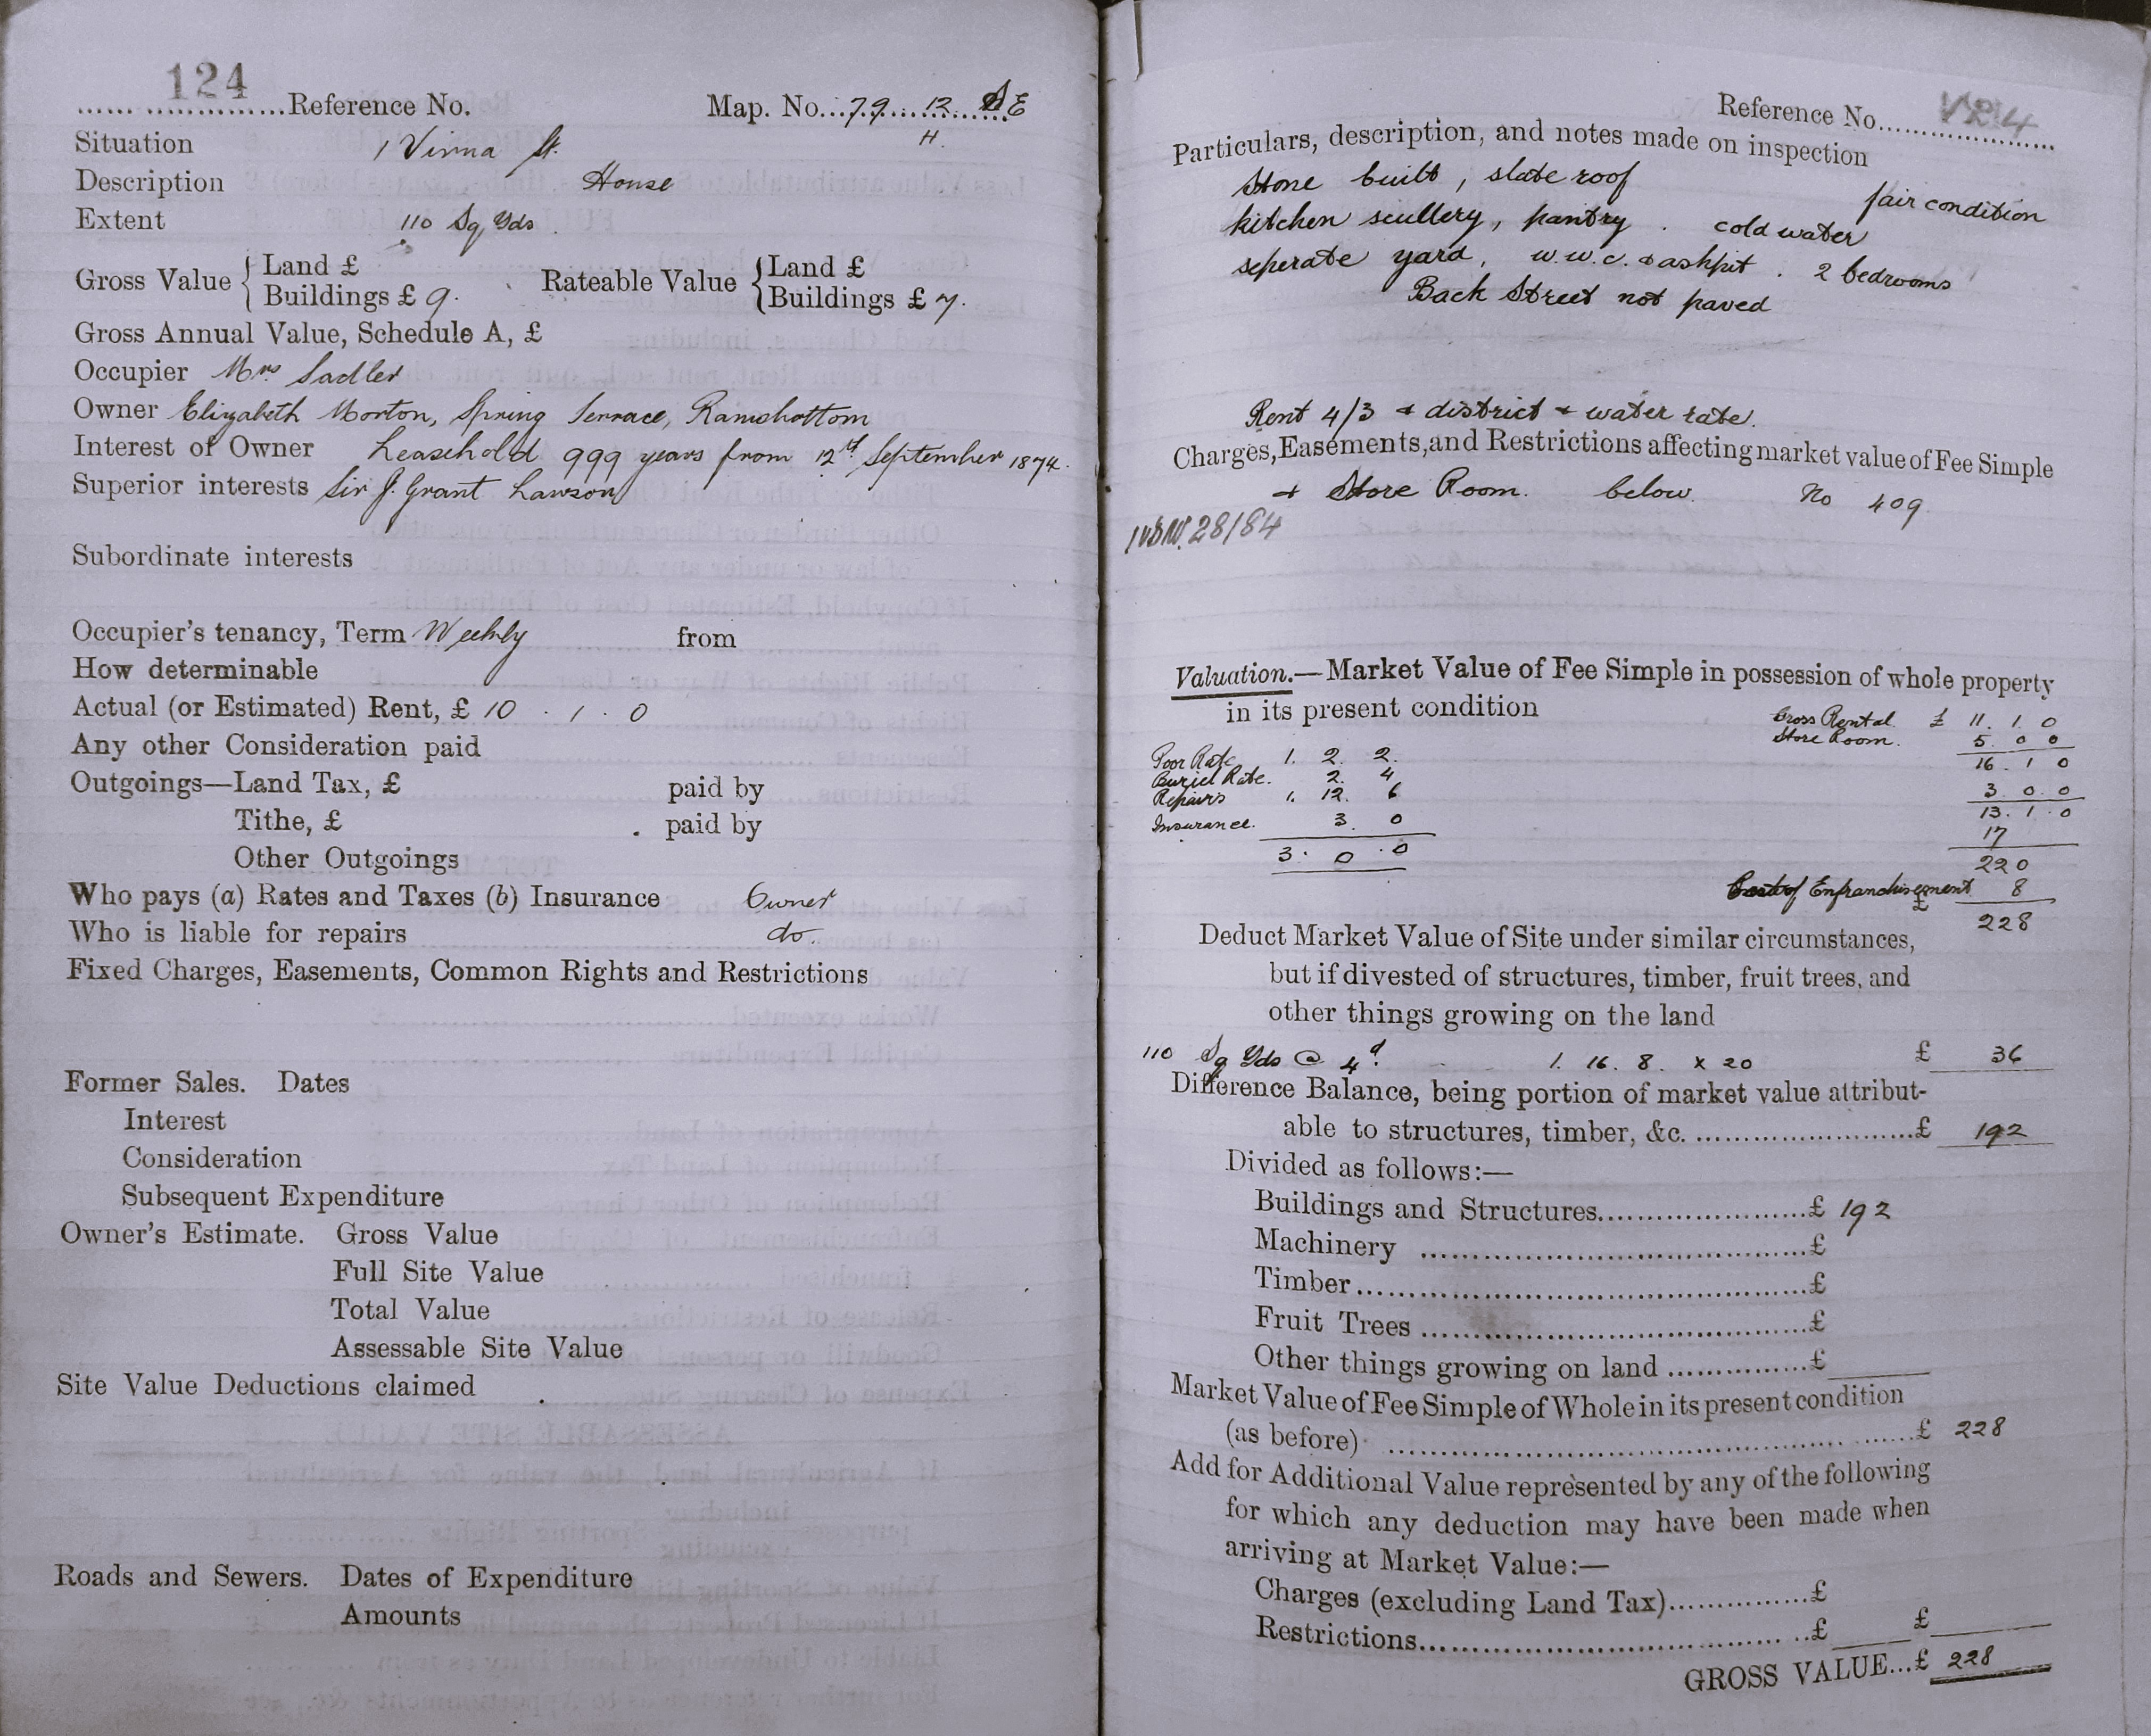 124
Reference No. Map. No. 79 12 SE
H.
Situation 1 Virma St.
Description House
Extent 110 Sq Yds.
Gross Value { Land £ Rateable Value { Land £
Buildings £ 9. Buildings £ 7.
Gross Annual Value, Schedule A, £
Occupier Mrs Sadler
Owner Elizabeth Morton, Spring Terrace, Ramsbottom
Interest of Owner Leasehold 999 years from 12th September 1874.
Superior interests Sir J. Grant Lawson
Subordinate interests
Occupier's tenancy, Term Weekly from
How determinable
Actual (or Estimated) Rent, £ 10 . 1 . 0
Any other Consideration paid
Outgoings—Land Tax, £ paid by
Tithe, £ paid by
Other Outgoings
Who pays (a) Rates and Taxes (b) Insurance Owner
Who is liable for repairs do.
Fixed Charges, Easements, Common Rights and Restrictions
Former Sales. Dates
Interest
Consideration
Subsequent Expenditure
Owner's Estimate. Gross Value
Full Site Value
Total Value
Assessable Site Value
Site Value Deductions claimed
Roads and Sewers. Dates of Expenditure
Amounts
Reference No.
Particulars, description, and notes made on inspection
Stone built, slate roof fair condition
kitchen scullery, pantry. cold water
seperate yard, w.w.c. & ashpit. 2 bedrooms
Back Street not paved
Rent 4/3 + district + water rate.
Charges, Easements, and Restrictions affecting market value of Fee Simple
+ Store Room. below. No 409
28/84
Valuation.—Market Value of Fee Simple in possession of whole property
in its present condition
Gross Rental £ 11. 1. 0
Store Room. 5 0 0
16 . 1 0
3 . 0 . 0
13. 1. 0
17
220
Poor Rate 1. 2. 2.
Buriel Rate. 2. 4
Repairs 1. 12. 6
Insurance. 3. 0
3. 0. 0
Cost of Enfranchisement 8
£ 228
Deduct Market Value of Site under similar circumstances,
but if divested of structures, timber, fruit trees, and
other things growing on the land
110 Sq Yds @ 4d. 1. 16. 8. x 20 £ 36
Difference Balance, being portion of market value attribut-
able to structures, timber, &c. £ 192
Divided as follows:—
Buildings and Structures £ 192
Machinery £
Timber £
Fruit Trees £
Other things growing on land £
Market Value of Fee Simple of Whole in its present condition
(as before) £ 228
Add for Additional Value represented by any of the following
for which any deduction may have been made when
arriving at Market Value:—
Charges (excluding Land Tax) £
Restrictions £ £
GROSS VALUE...£ 228